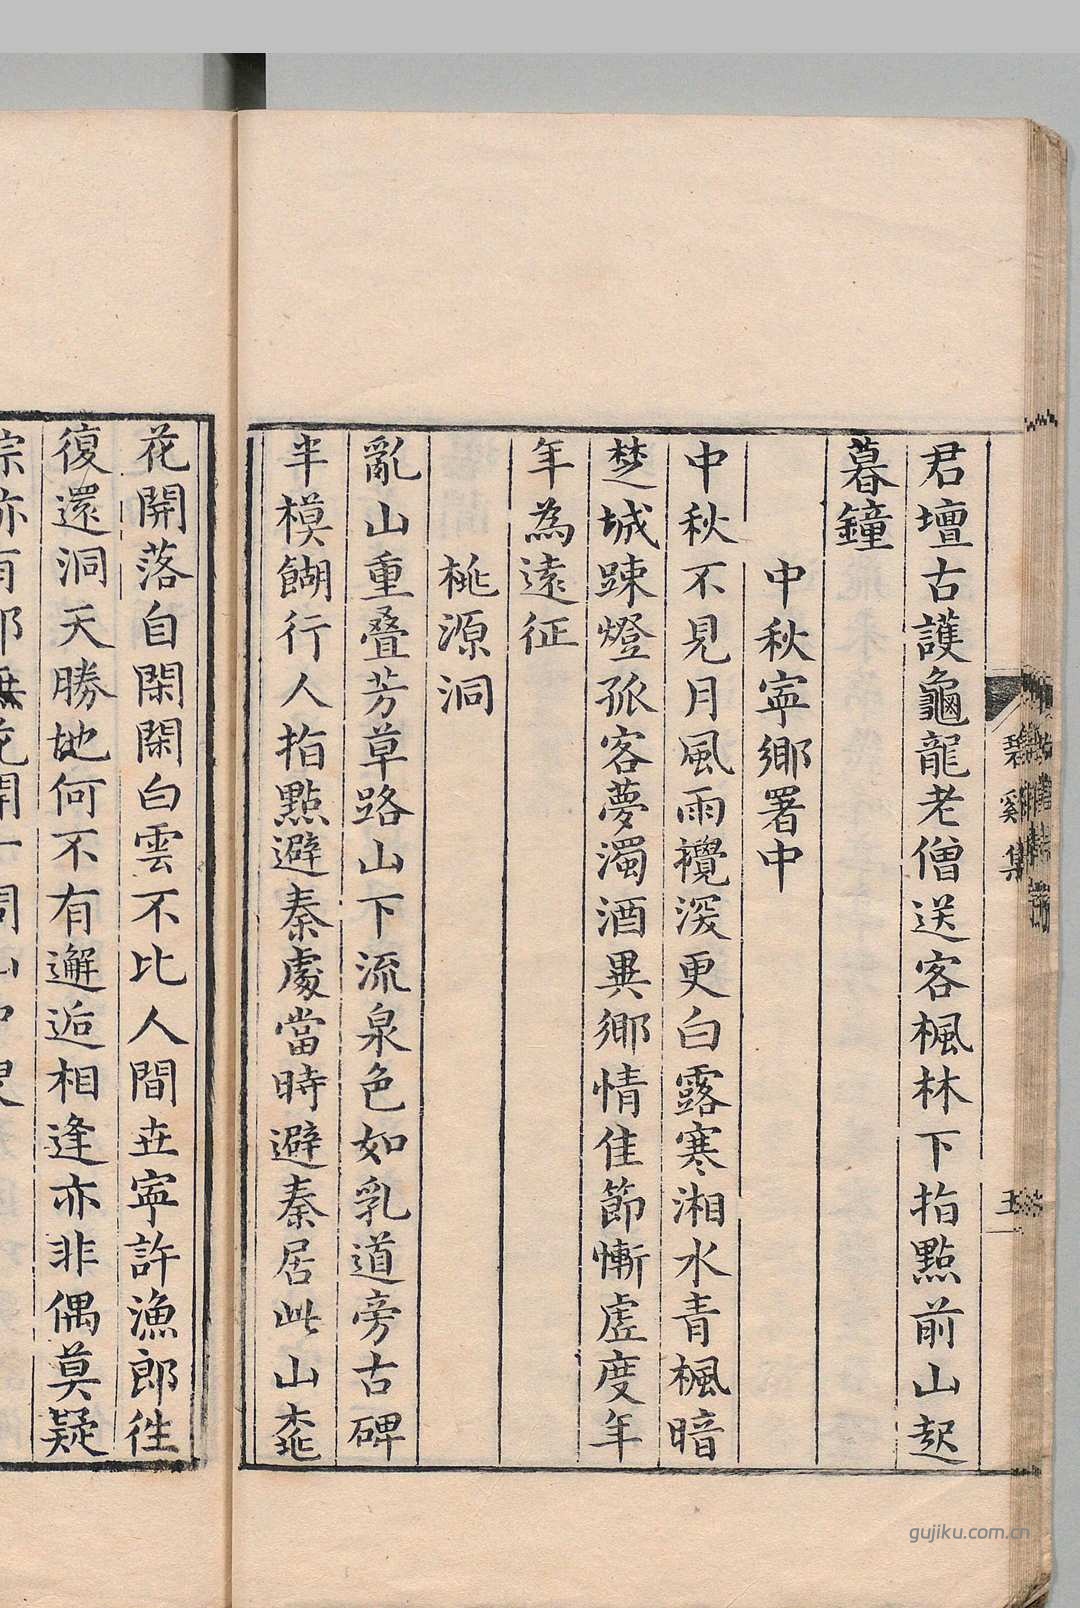 碧溪集
五
君壇古護龜龍老僧送客楓林下指點前山起
暮鐘
中秋寧鄉署中
中秋不見月風雨攪深更白露寒湘水青楓暗
楚城踈燈孤客夢濁酒異鄉情佳節慚虛度年
年為遠征
桃源洞
亂山重疊芳草路山下流泉色如乳道旁古碑
半模餬行人指點避秦處當時避秦居此山桃
花開落自閑閑白雲不比人間世寧許漁郎徃
復還洞天勝地何不有邂逅相逢亦非偶莫疑
gujiku.com.cn